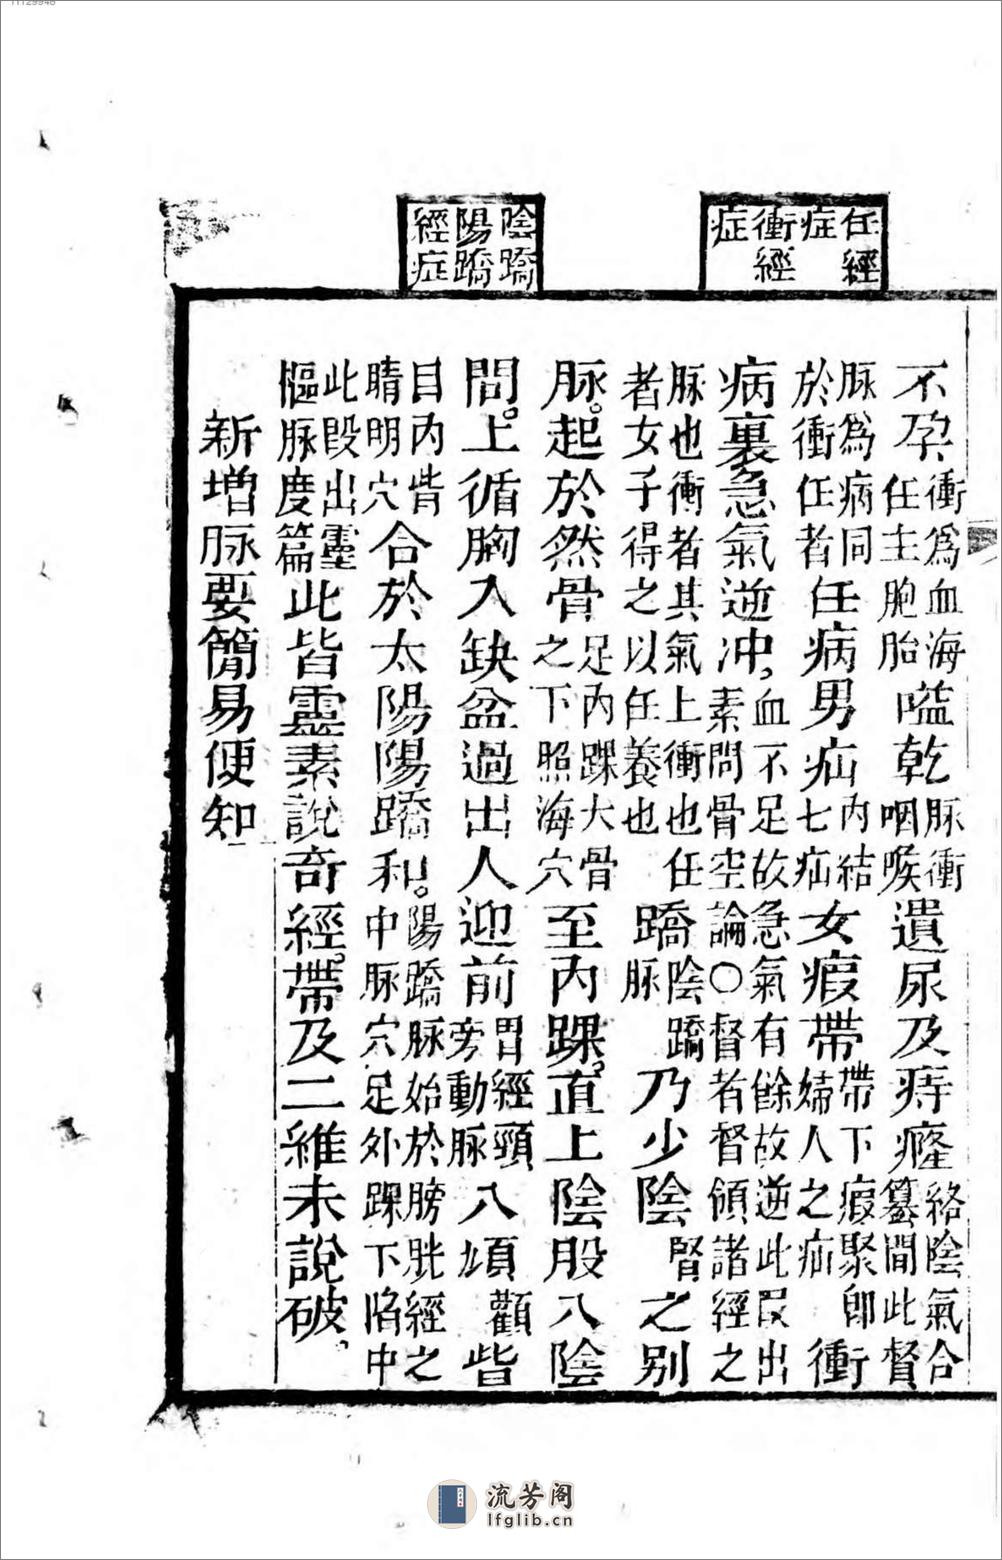 11129948
任經
症
衝經
症
陰蹻
陽蹻
經症
不孕衝爲血海任主胞胎嗌乾脉衝咽喉遺尿及痔癃絡陰氣合簒間此督
脉爲病同於衝任者任病男疝內結七疝女瘕帶帶下瘕聚卽婦人之疝衝
病裏急氣逆冲血不足故急氣有餘故逆此叚出素問骨空論〇督者督領諸經之
脉也衝者其氣上衝也任者女子得之以任養也蹻陰蹻脉乃少陰腎之别
脉。起於然骨足內踝大骨之下照海穴至內踝。直上陰股入陰
間。上循胸入缺盆過出人迎前胃經頸旁動脉入頄顴眥
目內眥晴明穴合於太陽陽蹻和。陽蹻脉始於膀胱經之中脉穴足外踝下陷中
此叚出靈樞脉度篇此皆靈素說奇經。帶及二維未說破。
新增脉要簡易便知
流芳阁
lfglib.cn